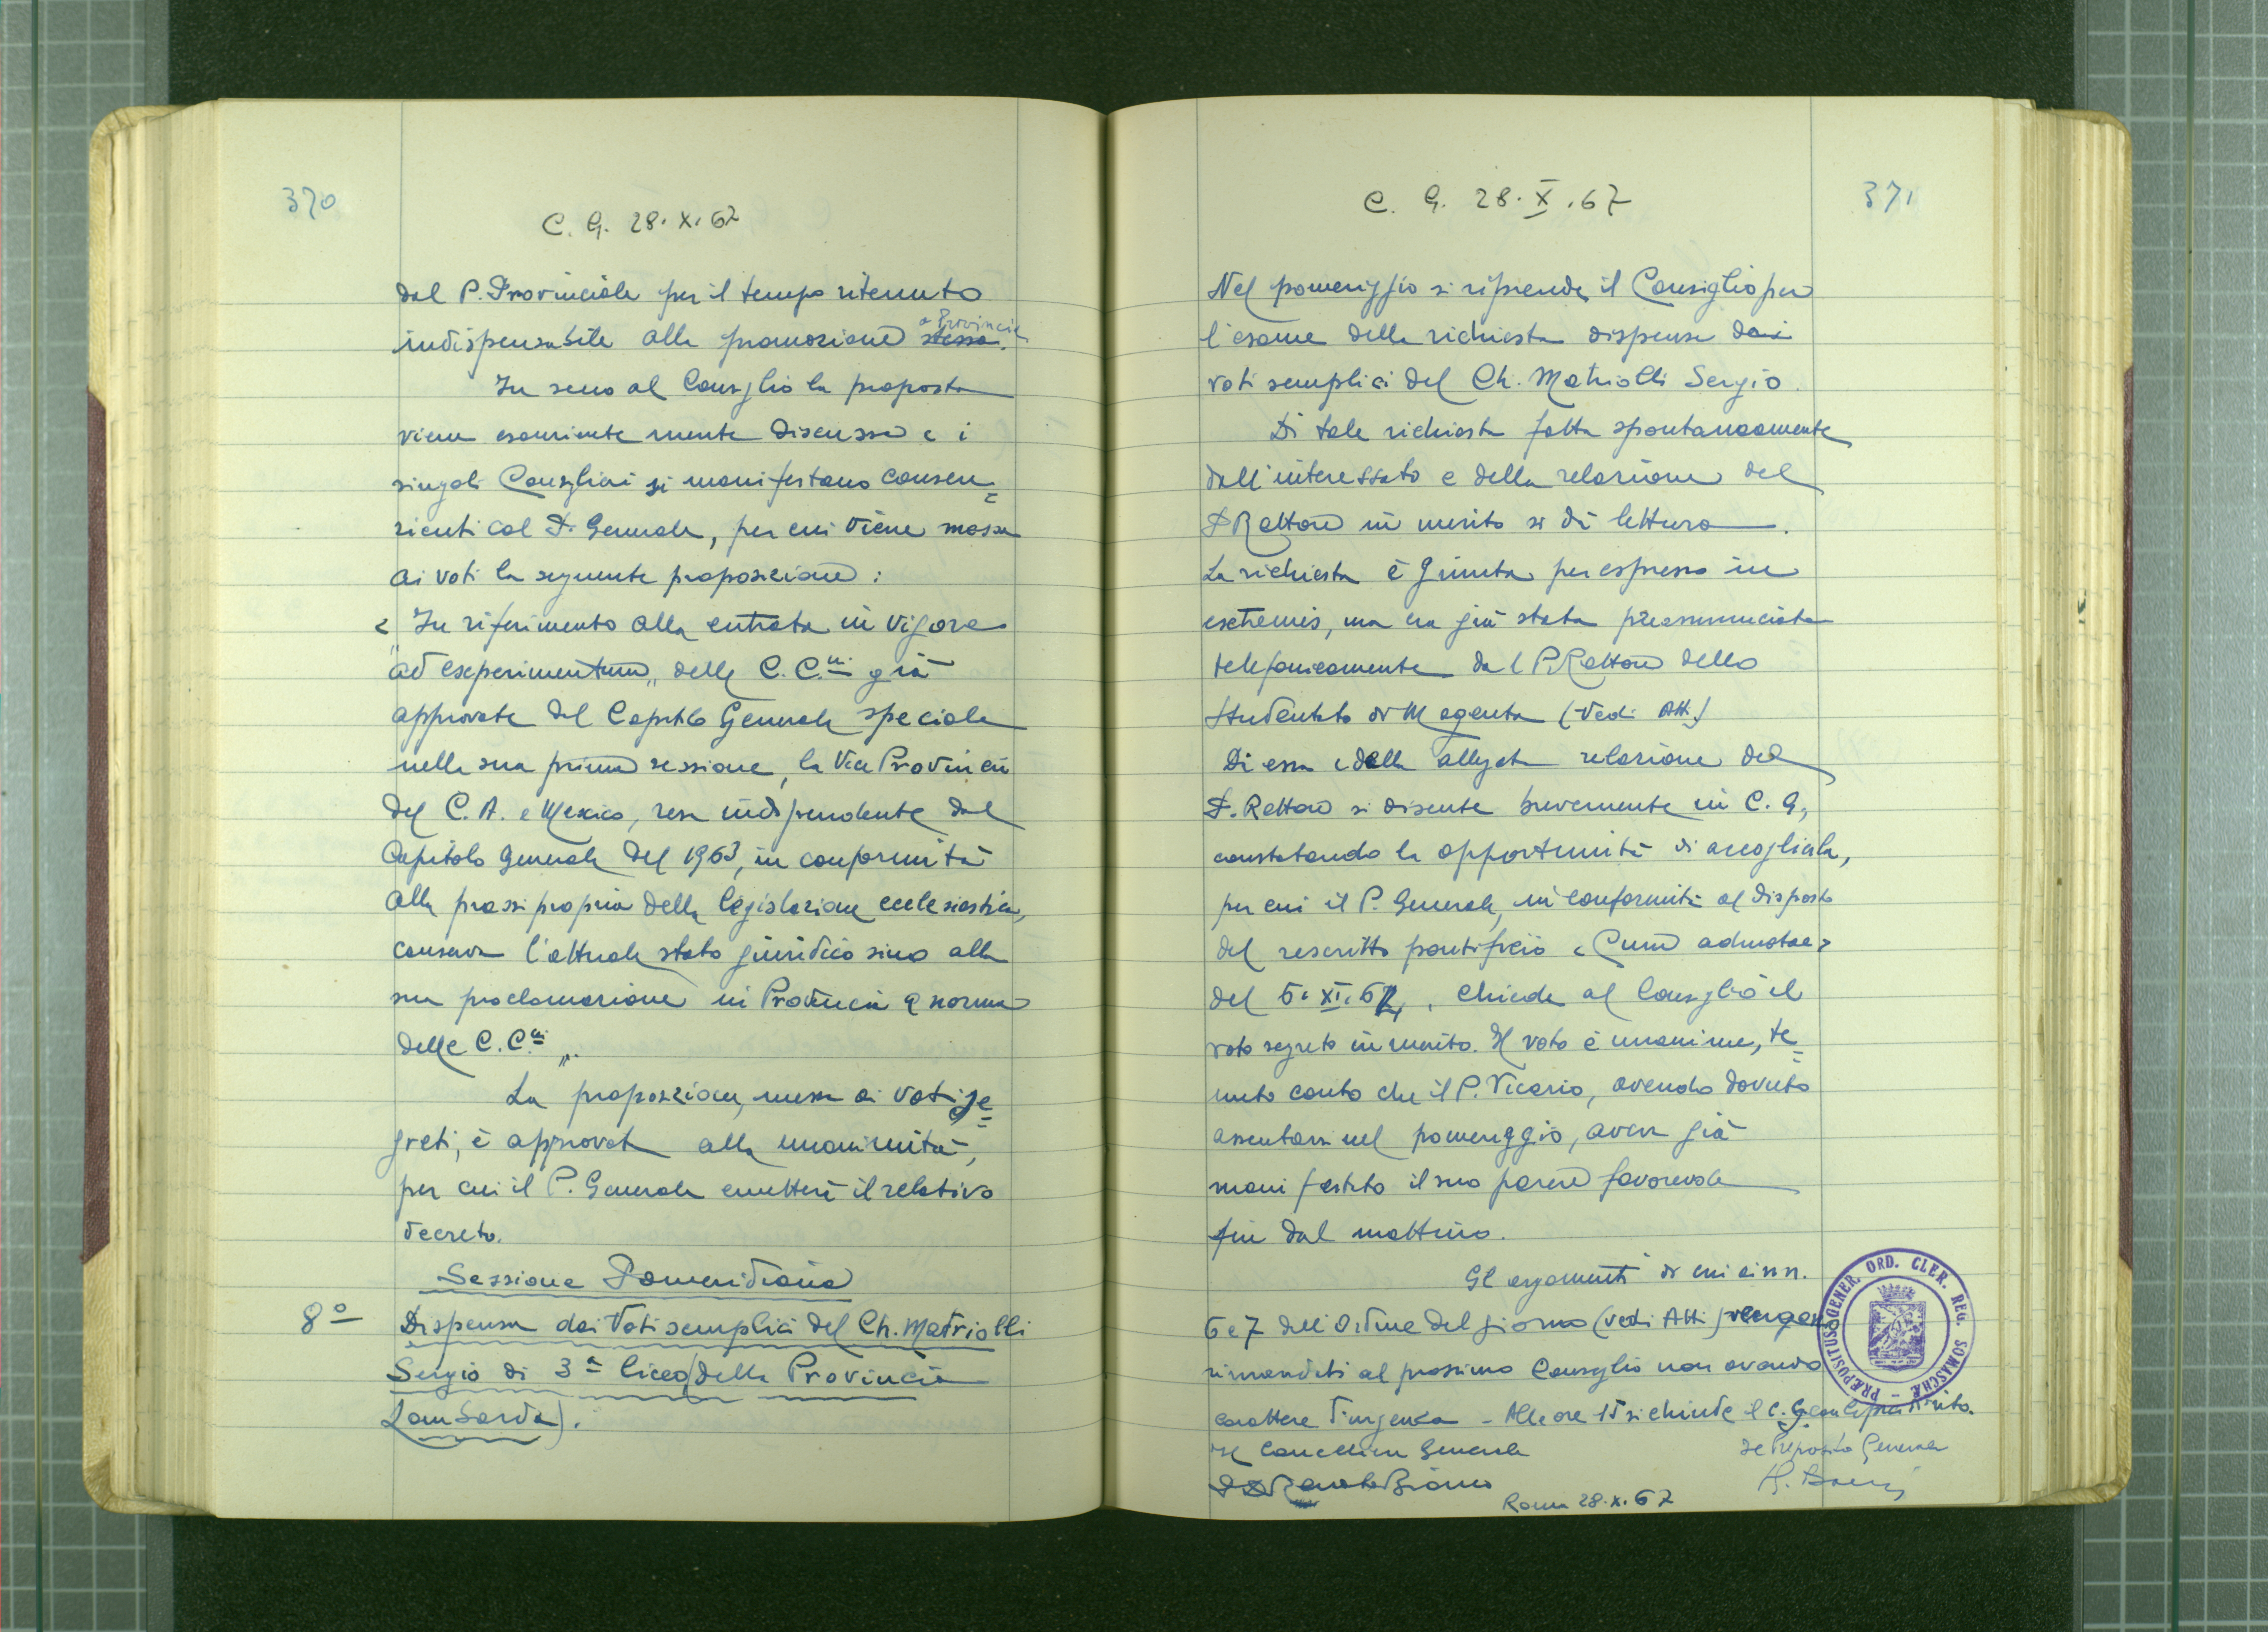 370
C. G. 28. X. 67
dal P. Provinciale per il tempo ritenuto
indispensabile alla promozione a Provincia stessa.
In seno al Consiglio la proposta
viene esaurientemente discussa e i
singoli Consiglieri si manifestano consen=
zienti col P. Generale, per cui viene messa
ai voti la seguente proposizione:
« In riferimento alla entrata in vigore
"ad experimentum" delle C.C.ni già
approvate dal Capitolo Generale speciale
nella sua prima sessione, la Vice Provincia
del C. A. e Mexico, resa indipendente dal
Capitolo Generale del 1963, in conformità
alla prassi propria della legislazione ecclesiastica,
conserva l'attuale stato giuridico sino alla
sua proclamazione in Provincia a norma
delle C.C.ni ".
La proposizione, messa ai voti se=
greti, è approvata alla unanimità,
per cui il P. Generale emetterà il relativo
decreto.
Sessione Pomeridiana
8° Dispensa dai Voti semplici del Ch. Matriolli
Sergio di 3ª liceo (della Provincia
Lombarda).
C. G. 28. X. 67
371
Nel pomeriggio si riprende il Consiglio per
l'esame della richiesta dispensa dai
voti semplici del Ch. Matriolli Sergio.
Di tale richiesta fatta spontaneamente
dall'interessato e della relazione del
P. Rettore in merito si dà lettura.
La richiesta è giunta per espresso in
extremis, ma era già stata preannunciata
telefonicamente dal P. Rettore dello
Studentato di Magenta (Vedi Atti)
Di essa e della allegata relazione del
P. Rettore si discute brevemente in C. G.,
constatando la opportunità di accoglierla,
per cui il P. Generale, in conformità al disposto
del rescritto pontificio « Cum admotae »
del 6. XI. 64, chiede al Consiglio il
voto segreto in merito. Il voto è unanime, te=
nuto conto che il P. Vicario, avendo dovuto
assentarsi nel pomeriggio, aveva già
manifestato il suo parere favorevole
fin dal mattino.
Gli argomenti di cui ai nn.
6 e 7 dell'Ordine del giorno (vedi Atti) vengono
rimandati al prossimo Consiglio non avendo
carattere d'urgenza - Alle ore 15 si chiude il C. G. con le preci di rito.
Il Cancelliere Generale
Il Preposito Generale
P. Renato Bianco
Roma 28. X. 67
PRÆPOSITUS GENER. ORD. CLER. REG. SOMASCHÆ